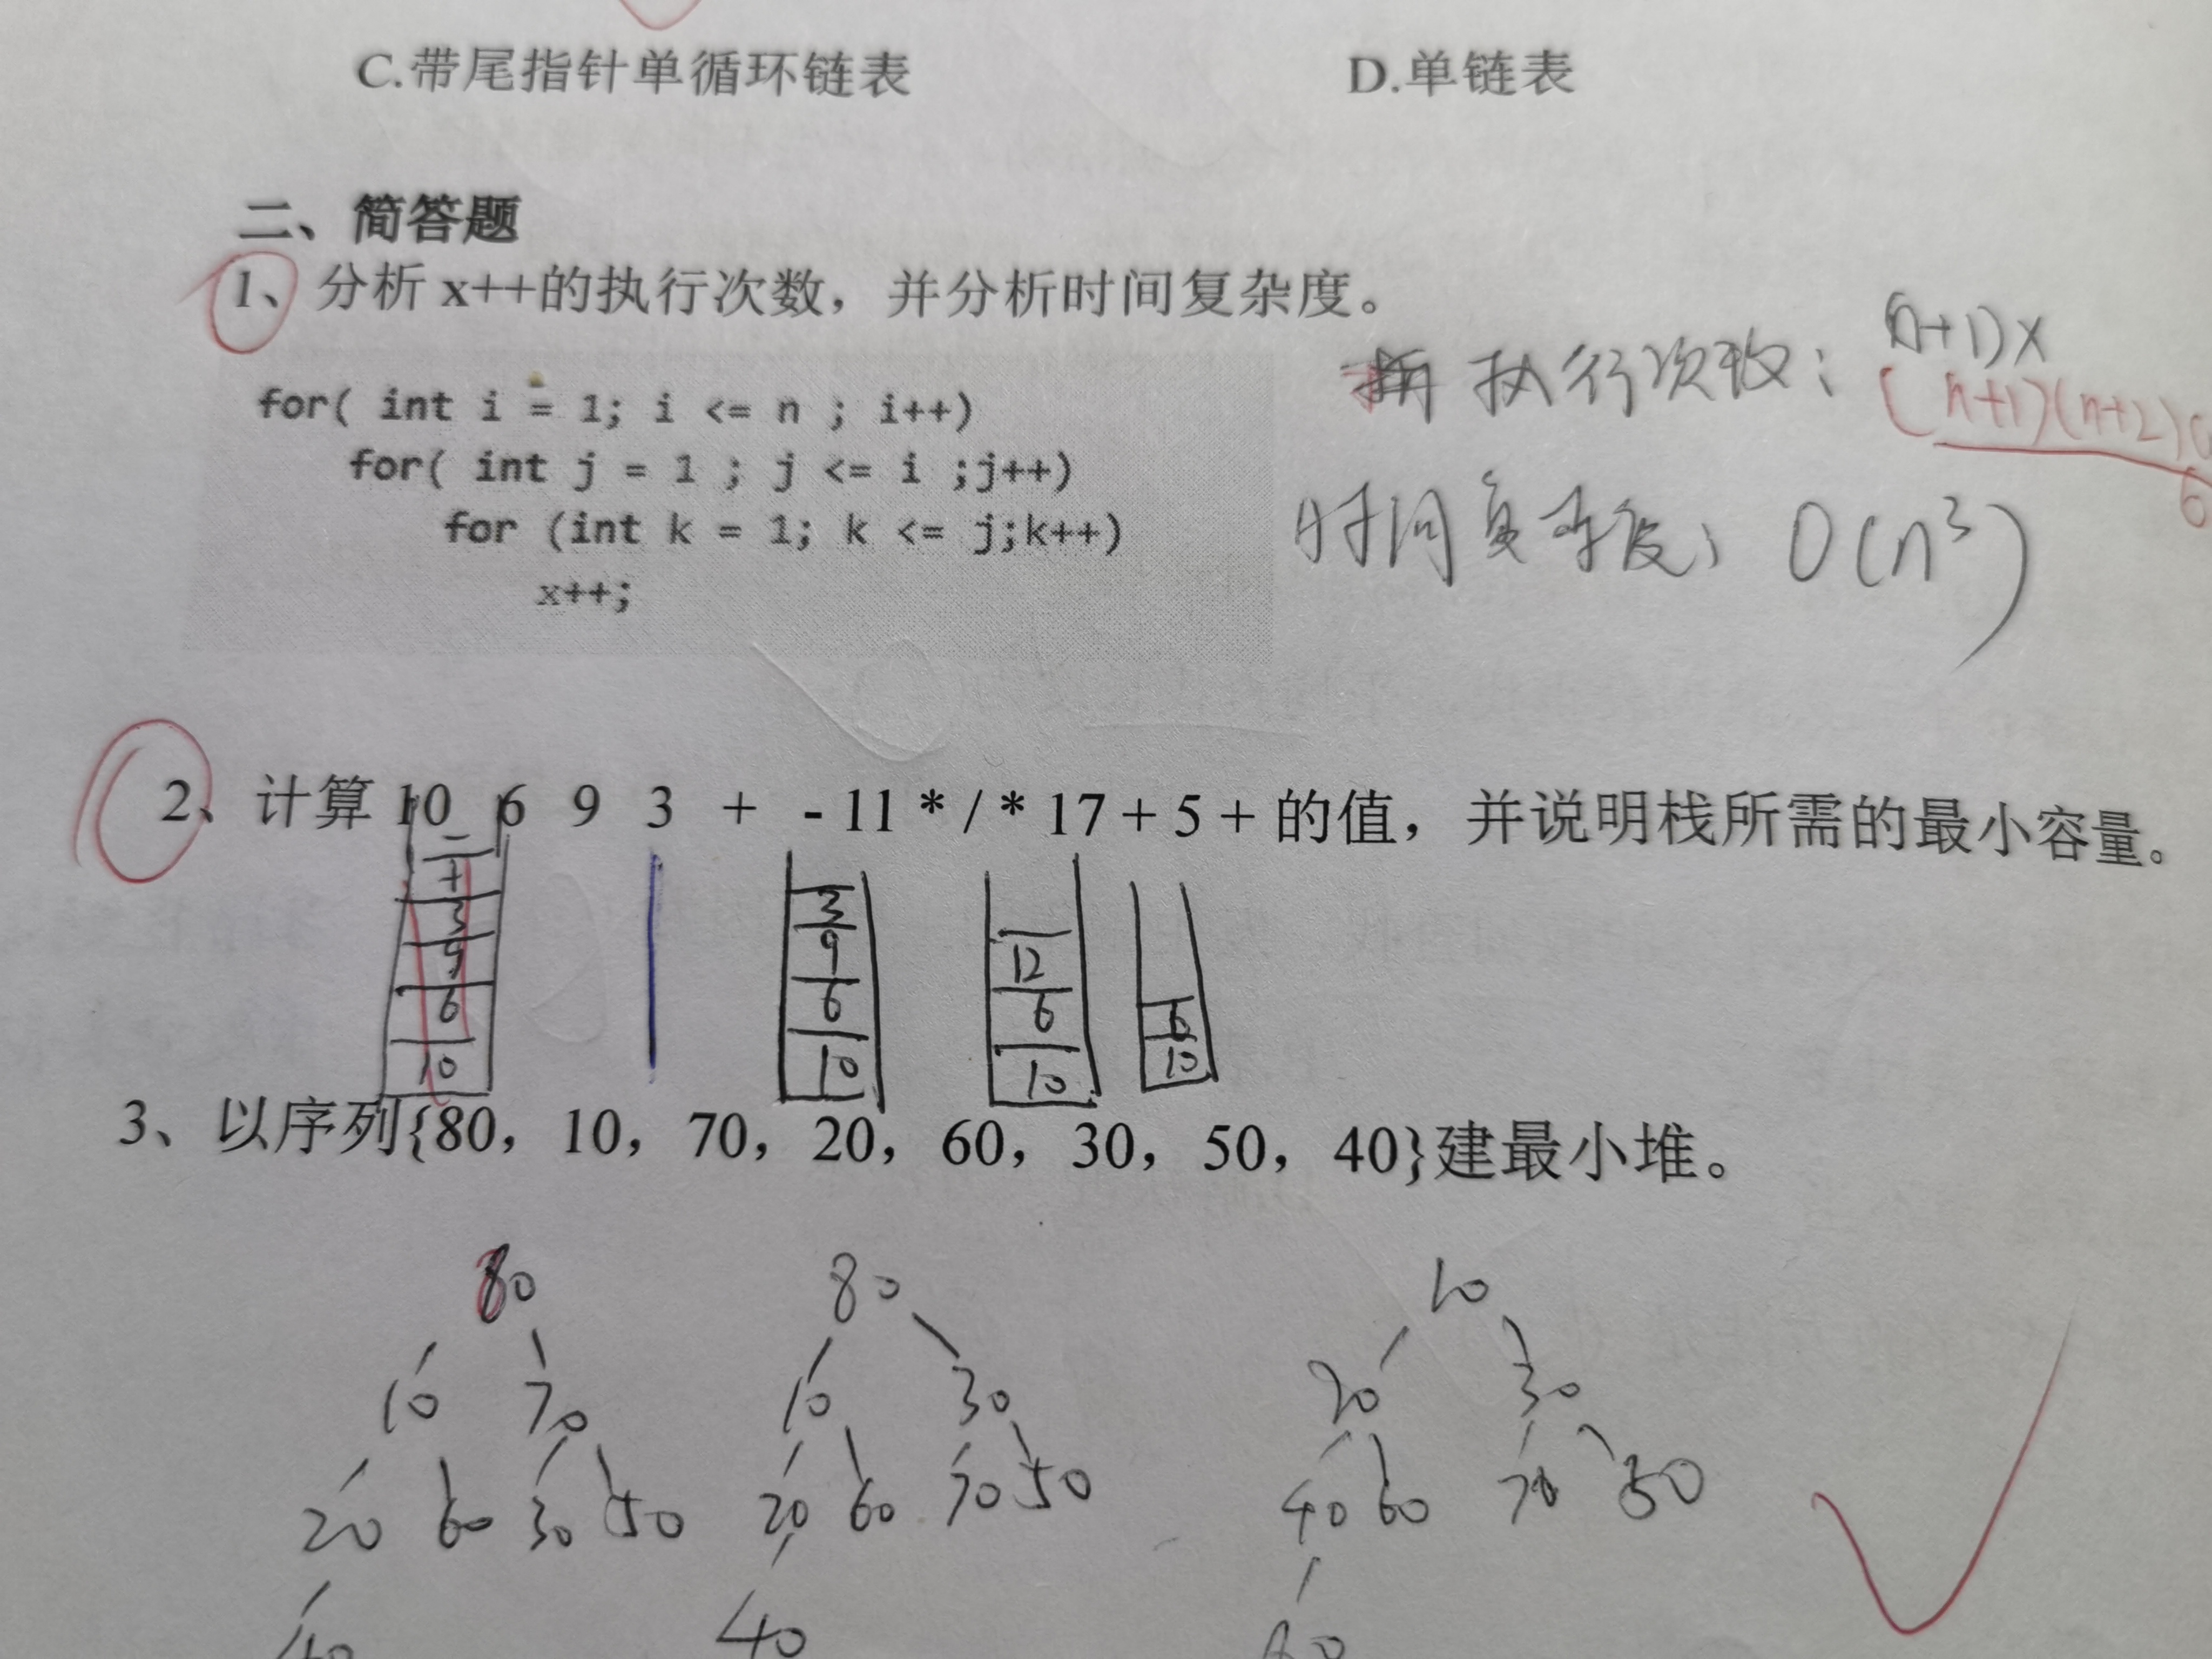 C.带尾指针单循环链表 D.单链表
二、简答题
1、分析 x++的执行次数，并分析时间复杂度。
for( int i = 1; i <= n ; i++)
for( int j = 1 ; j <= i ;j++)
for (int k = 1; k <= j;k++)
x++;
执行次数：(n+1)x
(n+1)(n+2)(
6
时间复杂度： O(n³)
2、计算 10 6 9 3 + - 11 * / * 17 + 5 + 的值，并说明栈所需的最小容量。
-
+
3
9
6
10
3
9
6
10
12
6
10
6
10
3、以序列{80，10，70，20，60，30，50，40}建最小堆。
80 80 10
10 70 10 30 20 30
20 60 30 50 20 60 70 50 40 60 70 50
40 40 80